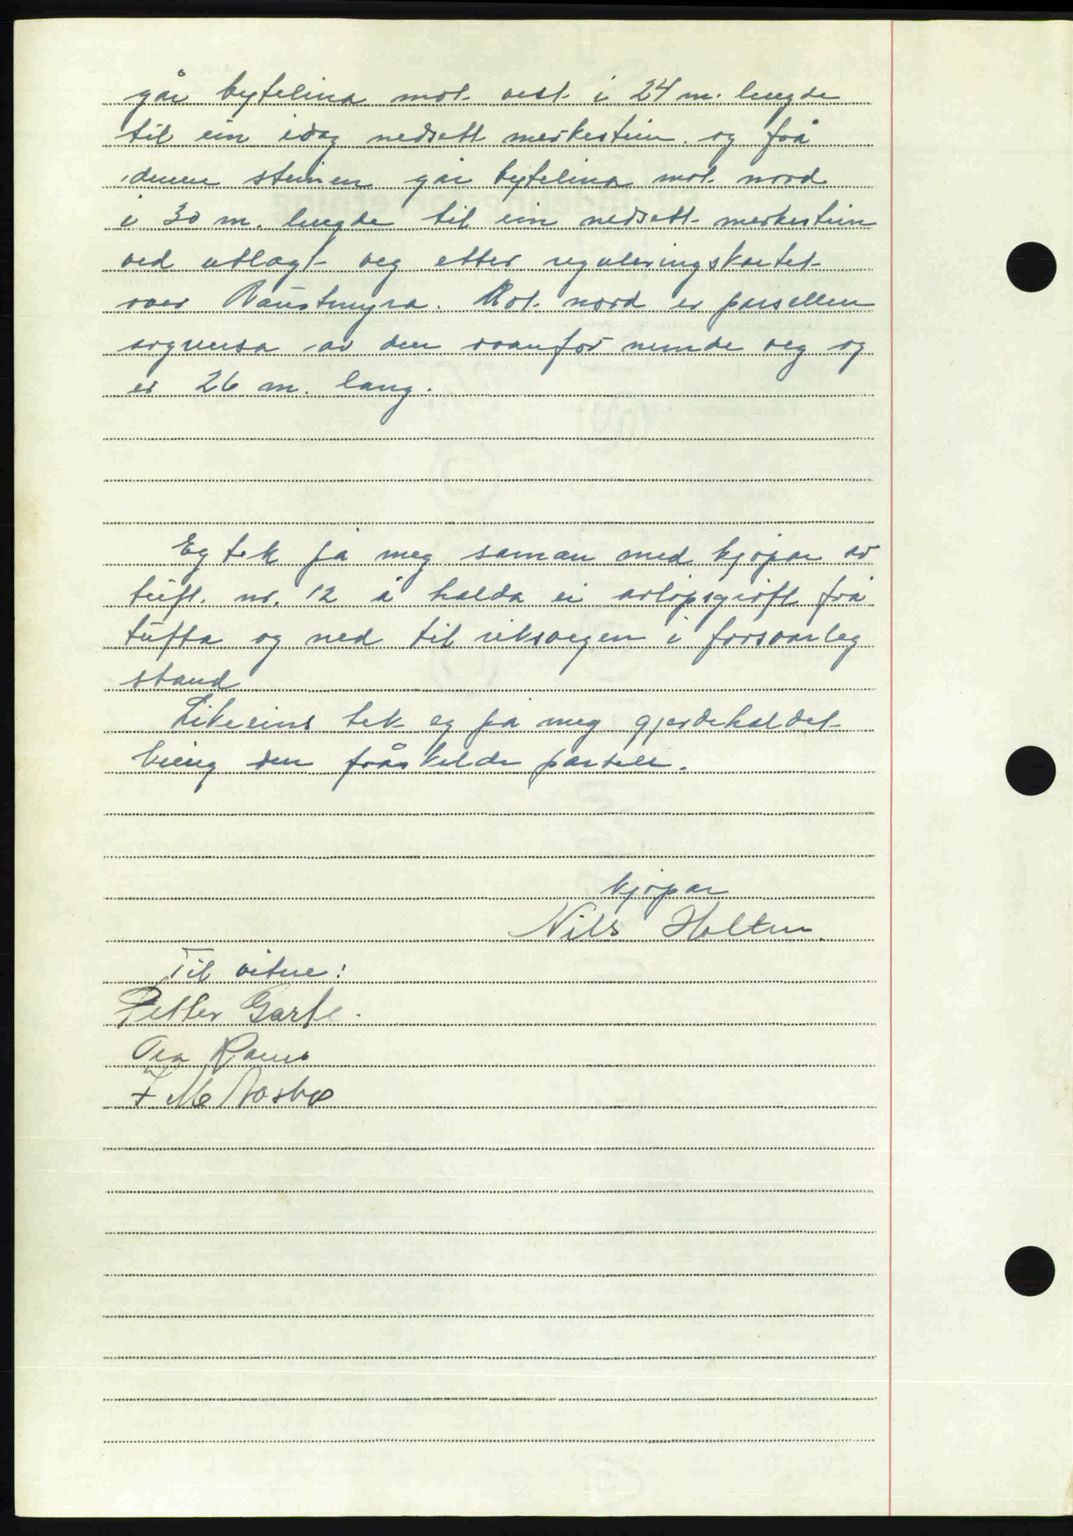 går bytelina mot vest i 24 m. lengde
til ein idag nedsett merkestein og frå
denen steinen går bytelina mot nord
i 30 m. lengde til ein nedsett merkestein
ved utlagt veg etter reguleringskartet
over Naustmyra. Mot nord er parsellen
avgrensa av den ovanfor nemde veg og
er 26 m. lang.
Eg tek på meg saman med kjøpar av
tuft. nr. 12 å halda ei avløpsgrøft frå
tufta og ned til riksvegen i forsvarleg
stand
Likeeins tek eg på meg gjerdehaldet
kring den fråskelde parsell.
kjøpar
Nils Holten
Til vitne:
Petter Garte.